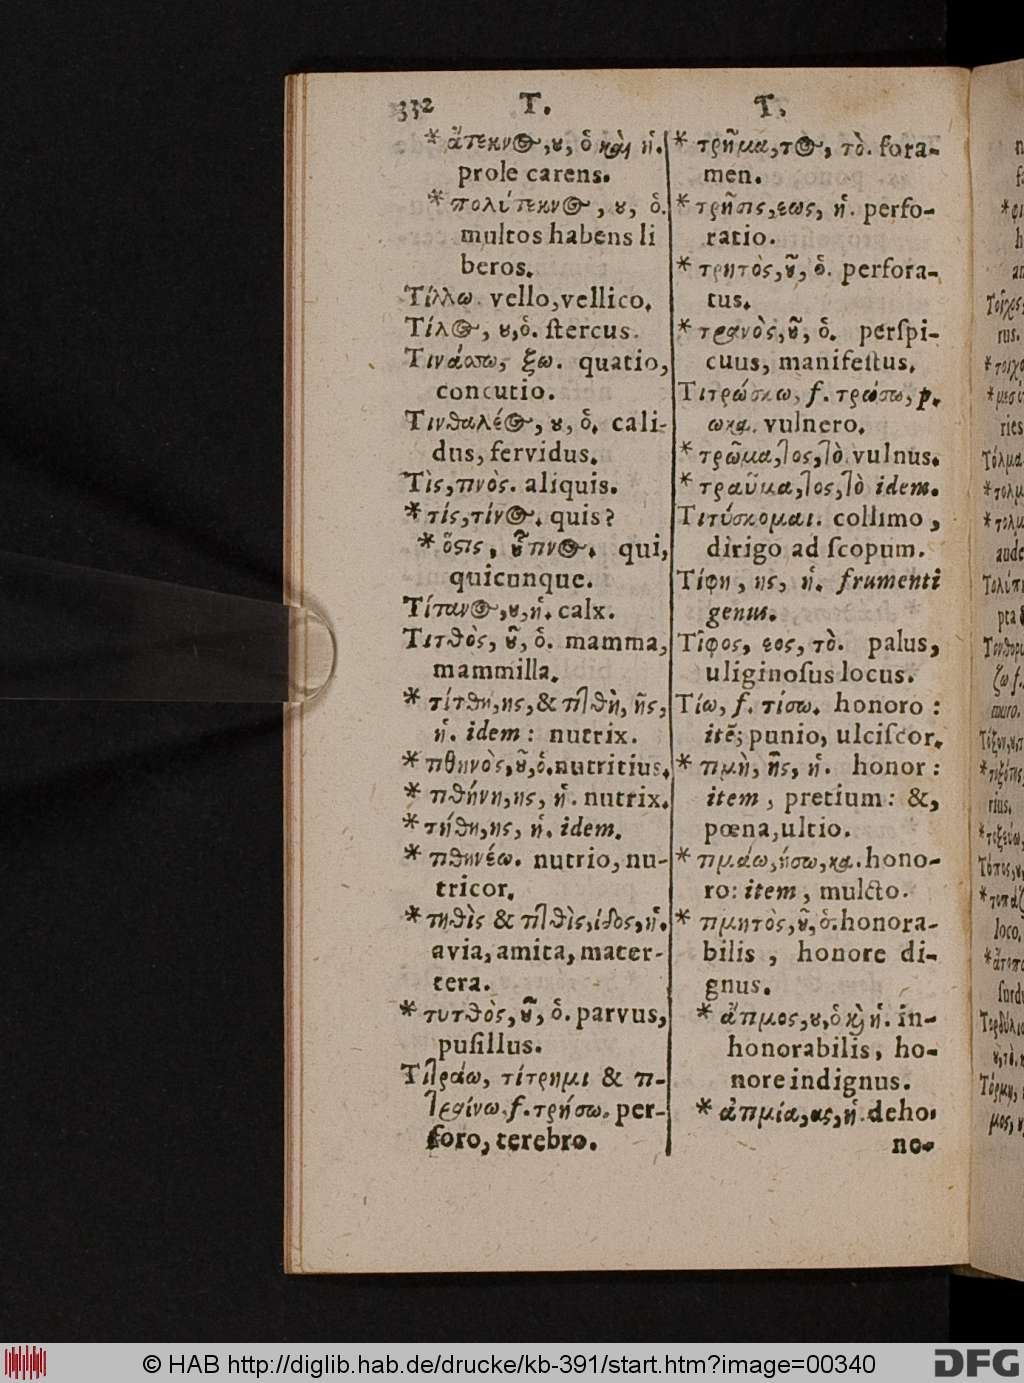 332 T. T.
* ἄτεκνος, ου, ὁ καὶ ἡ.
prole carens.
* πολύτεκνος, ου, ὁ.
multos habens li
beros.
Τίλλω. vello, vellico.
Τίλος, ου, ὁ. ſtercus.
Τινάσσω, ξω. quatio,
concutio.
Τινθαλέος, ου, ὁ. cali-
dus, fervidus.
Τὶς, τινὸς. aliquis.
* τίς, τίνος. quis?
* ὅστις, οὗτινος. qui,
quicunque.
Τίτανος, ου, ἡ. calx.
Τιτθὸς, οῦ, ὁ. mamma,
mammilla.
* τίτθη, ης, & τιτθὴ, ῆς,
ἡ. idem: nutrix.
* τιθηνὸς, οῦ, ὁ. nutritius.
* τιθήνη, ης, ἡ. nutrix.
* τήθη, ης, ἡ. idem.
* τιθηνέω. nutrio, nu-
tricor.
* τηθὶς & τιτθὶς, ίδος, ἡ.
avia, amita, mater-
tera.
* τυτθὸς, οῦ, ὁ. parvus,
puſillus.
Τιτράω, τίτρημι & τι-
τραίνω. f. τρήσω. per-
foro, terebro.
* τρῆμα, τος, τὸ. fora-
men.
* τρῆσις, εως, ἡ. perfo-
ratio.
* τρητὸς, οῦ, ὁ. perfora-
tus.
* τρανὸς, οῦ, ὁ. perſpi-
cuus, manifeſtus.
Τιτρώσκω, f. τρώσω, p.
ωκα. vulnero.
* τρῶμα, τος, τὸ. vulnus.
* τραῦμα, τος, τὸ idem.
Τιτύσκομαι. collimo,
dirigo ad ſcopum.
Τίφη, ης, ἡ. frumenti
genus.
Τῖφος, εος, τὸ. palus,
uliginoſus locus.
Τίω, f. τίσω. honoro:
itē; punio, ulciſcor.
* τιμὴ, ῆς, ἡ. honor:
item, pretium: &,
pœna, ultio.
* τιμάω, ήσω, κα. hono-
ro: item, mulcto.
* τιμητὸς, οῦ, ὁ. honora-
bilis, honore di-
gnus.
* ἄτιμος, ου, ὁ κὶ ἡ. in-
honorabilis, ho-
nore indignus.
* ἀτιμία, ας, ἡ. deho-
no-
© HAB http://diglib.hab.de/drucke/kb-391/start.htm?image=00340
DFG